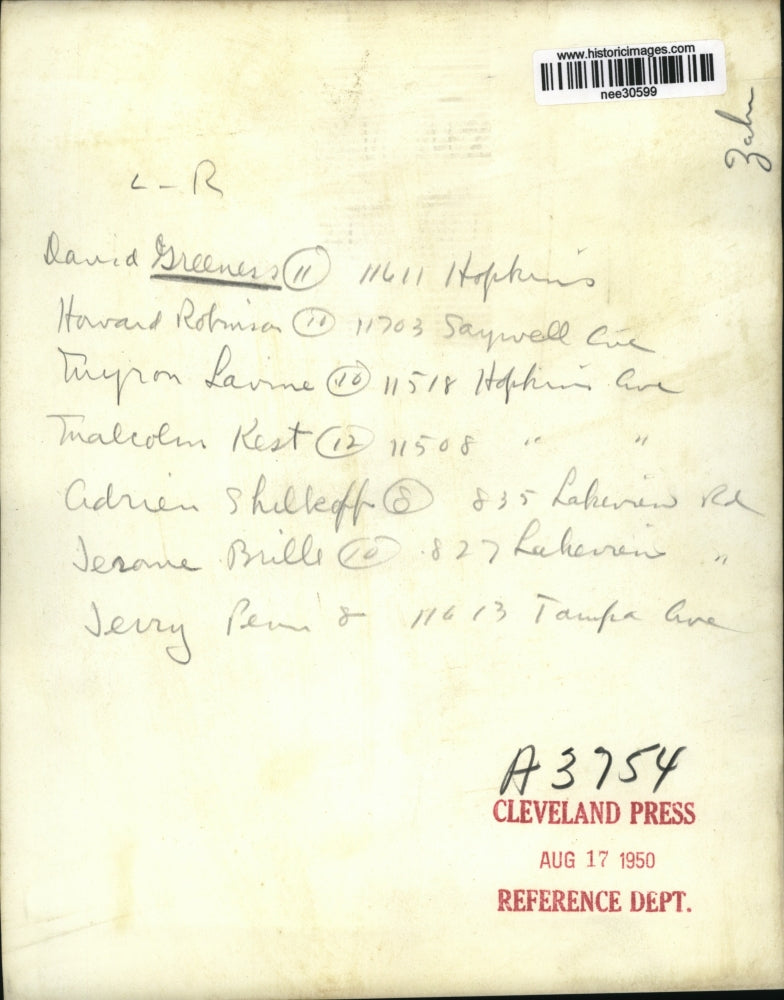 www.historicimages.com
nee30599
Zahn
L - R
David Greeness 11 11611 Hopkins
Howard Robinson 10 11703 Saywell Ave
Myron Lavine 10 11518 Hopkins Ave
Malcolm Kest 12 11508 " "
Adrien Shilkoff 8 835 Lakeview Rd
Jerome Brille 10 827 Lakeview "
Jerry 8 11613 Tampa Ave
A3754
CLEVELAND PRESS
AUG 17 1950
REFERENCE DEPT.